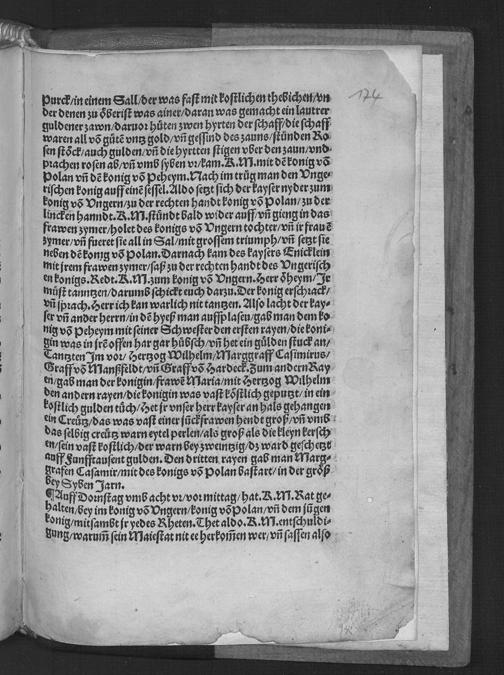 174
purck/in einem Sall/der was fast mit kostlichen thebichen/vn̄
der denen zu ȯberist was ainer/daran was gemacht ein lautrer
guldener zawn/daruor hůten zwen hyrten der schaff/die schaff
waren all vō gůtē vntz gold/vn̄ gessind des zauns/stůnden Ro
sen stöck/auch gulden/vn̄ die hyrtten stigen vber den zaun/vnd
prachen rosen ab/vn̄ vmb syben vr/kam.K.M.mit dē konig vō
Polan vn̄ dē konig vō Peheym. Nach im trůg man den Vnge-
rischen konig auff einē sessel. Aldo setzt sich der kayser nyder zum
konig vō Vngern/zu der rechten handt konig vō Polan/zu der
lincken hanndt.K.M.stůndt bald wider auff/vn̄ gieng in das
frawen zymer/holet des konigs vō Vngern tochter/vn̄ ir frauē
zymer/vn̄ fueret sie all in Sal/mit grossem triumph/vn̄ setzt sie
neben dē konyg vō Polan. Darnach kam des kaysers Enicklein
mit jrem frawen zymer/saß zu der rechten handt des Vngerisch
en konigs. Redt.K.M.zum konig vō Vngern. Herr ȯheym/Jr
můst tanntzen/darumb schickt euch darzu. Der konig erschrack/
vn̄ sprach. Herr ich kan warlich nit tantzen. Also lacht der kay-
ser vn̄ ander herrn/in dē hyeß man auffplasen/gab man dem ko
nig vō Peheym mit seiner Schwester den ersten rayen/die koni-
gin was in jrē offen har gar hübsch/vn̄ het ein gülden stuck an/
Tantzten Jm vor/Hertzog Wilhelm/Marggraff Casimirus/
Graff vō Manßfeldt/vn̄ Graff vō Hardeck. Zum andern Ray
en/gab man der konigin/frawē Maria/mit Hertzog Wilhelm
den andern rayen/die konigin was vast köstlich geputzt/in ein
kostlich gulden tůch/Het jr vnser herr kayser an hals gehangen
ein Creütz/das was vast einer jückfrawen hendt groß/vn̄ vmb
das selbig creütz warn eytel perlen/als groß als die kleyn kersch
en/sein vast kostlich/der warn bey zweintzig/dz ward geschetzt
auff Funfftausent gulden. Den dritten rayen gab man Marg-
grafen Casamir/mit des konigs vō Polan bastart/in der größ
bey Syben Jarn.
¶Auff Donstag vmb acht vr/vor mittag/hat.K.M.Rat ge-
halten/bey im konig vō Vngern/konig vō Polan/vn̄ dem jügen
konig/mitsambt jr yedes Rheten. Thet aldo.K.M.entschuldi-
gung/warum̄ sein Maiestat nit ee herkom̄en wer/vn̄ sassen also